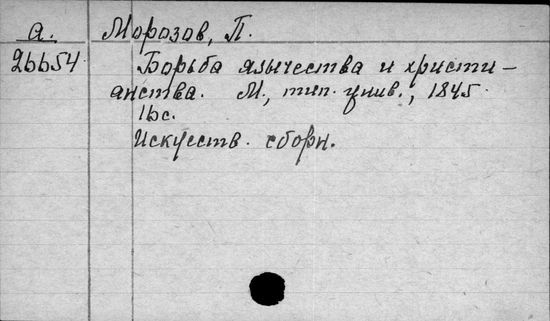 а. Морозов, П.
26654 Борьба язычества и христи-
анства. М., тип. унив., 1845.
16с.
Искусств. сборн.